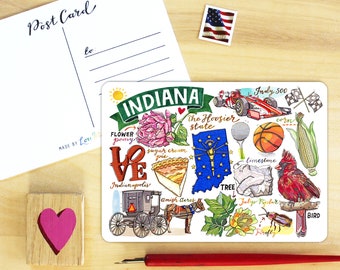 Post Card
to
MADE BY
INDIANA
Indy 500
The Hoosier
State
FLOWER
peony
corn
LOVE
sugar cream
pie
limestone
Indianapolis
TREE
Tulip
Amish Acres
firefly
BIRD